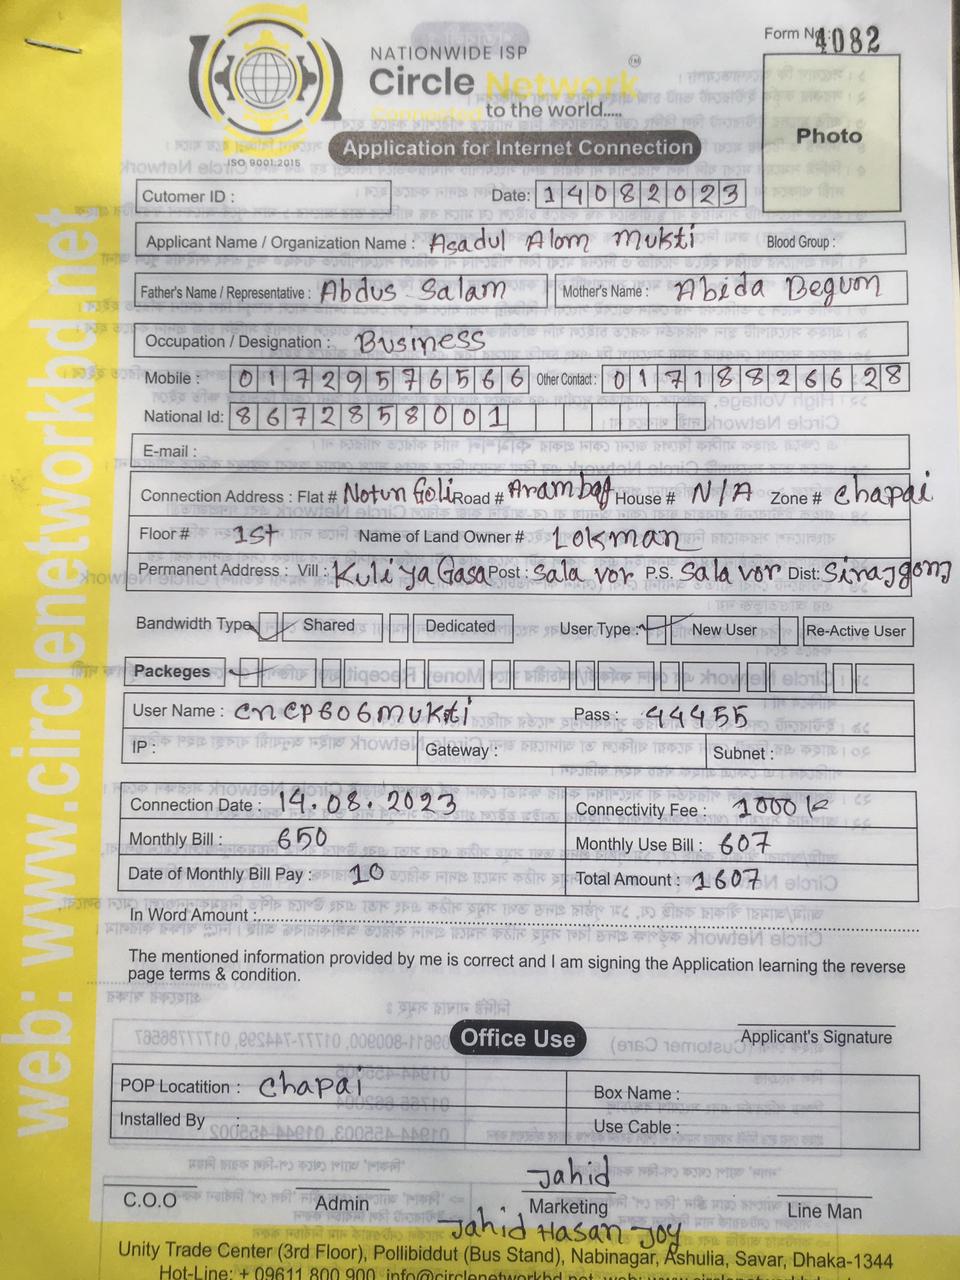 Form No.: 4082
NATIONWIDE ISP
Circle Network TM
Connected to the world.....
ISO 9001:2015
Application for Internet Connection
Photo
Cutomer ID :
Date: 14082023
Applicant Name / Organization Name : Asadul Alom Mukti Blood Group :
Father's Name / Representative : Abdus Salam Mother's Name : Abida Begum
Occupation / Designation : Business
Mobile : 01729576566 Other Contact : 01718826628
National Id: 8672858001
E-mail :
Connection Address : Flat # Notun Goli Road # Arambag House # N/A Zone # Chapai
Floor # 1st Name of Land Owner # Lokman
Permanent Address : Vill : Kuliya Gasa Post : Sala vor P.S. Sala vor Dist: Sirajgonj
Bandwidth Type Shared Dedicated User Type : New User Re-Active User
Packeges
User Name : cncp606mukti Pass : 44455
IP : Gateway : Subnet :
Connection Date : 14.08.2023 Connectivity Fee : 1000
Monthly Bill : 650 Monthly Use Bill : 607
Date of Monthly Bill Pay : 10 Total Amount : 1607
In Word Amount :
The mentioned information provided by me is correct and I am signing the Application learning the reverse
page terms & condition.
Applicant's Signature
Office Use
POP Locatition : Chapai Box Name :
Installed By : Use Cable :
Jahid
C.O.O Admin Marketing Line Man
Jahid Hasan Joy
Unity Trade Center (3rd Floor), Pollibiddut (Bus Stand), Nabinagar, Ashulia, Savar, Dhaka-1344
Hot-Line: + 09611 800 900, info@circlenetworkbd.net, web: www.circlenetworkbd
web: www.circlenetworkbd.net